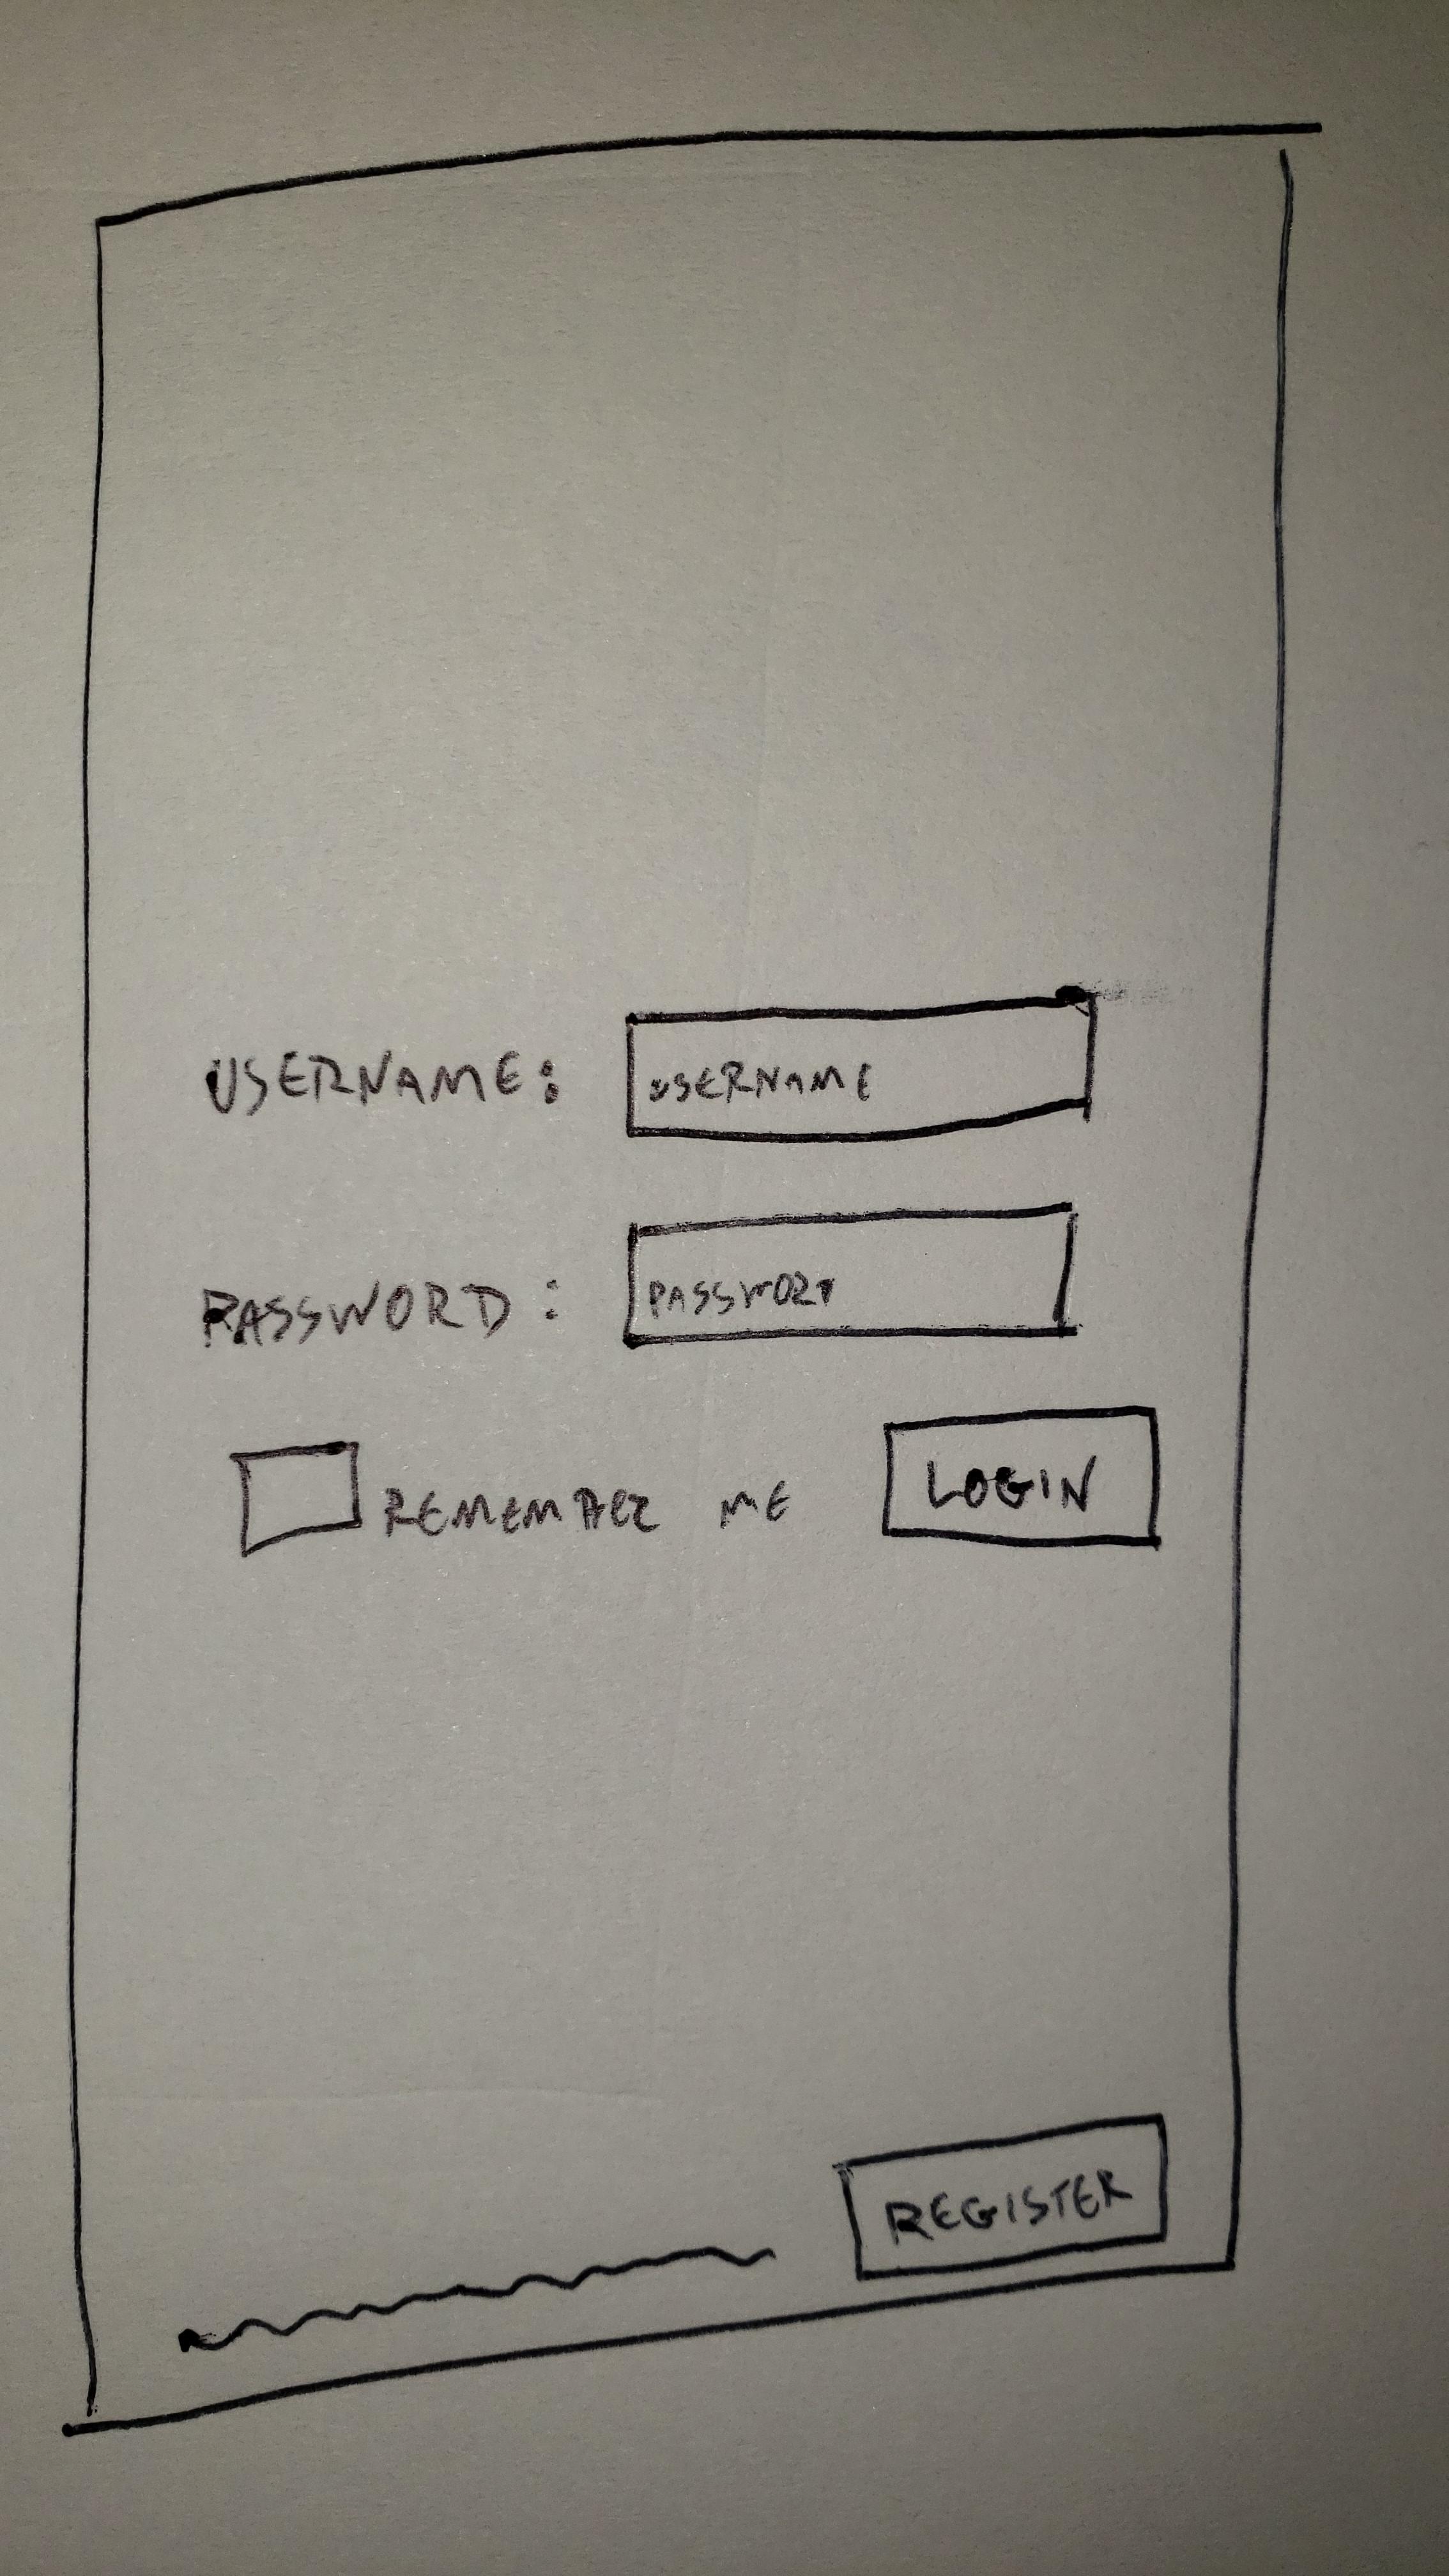 USERNAME: USERNAME
PASSWORD: PASSWORD
REMEMBER ME LOGIN
REGISTER